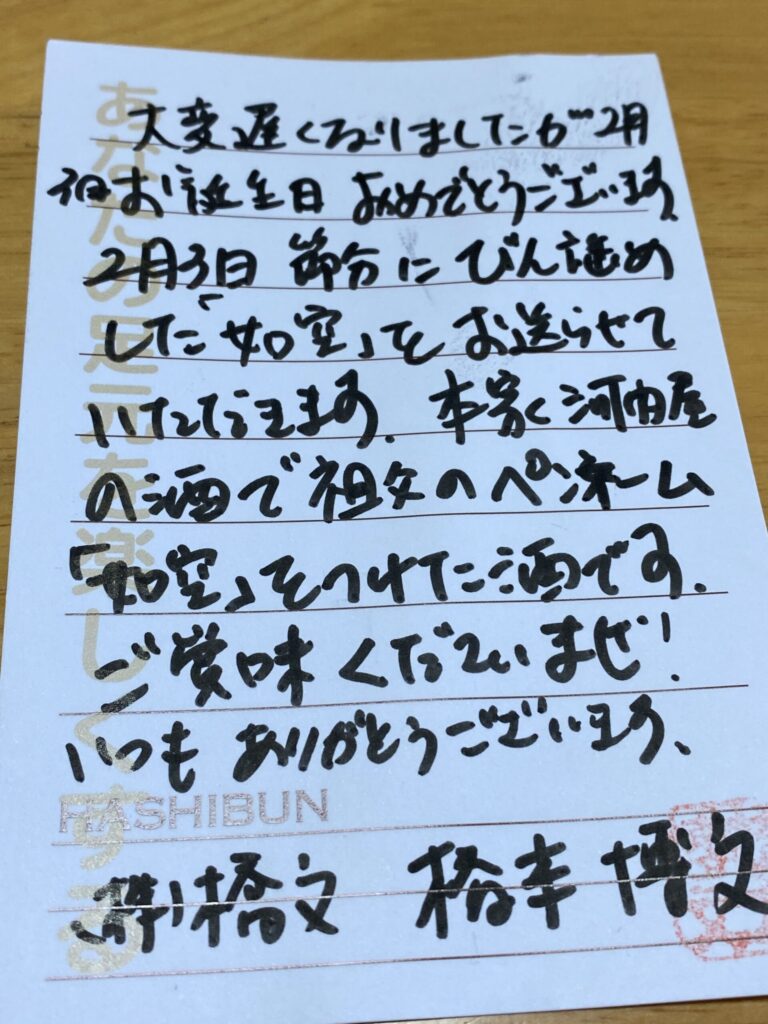 大変遅くなりましたが2月
お誕生日 おめでとうございます。
2月3日 節分に びん詰め
した「如空」を お送らせて
いただきます。本家く河内屋
の酒で祖父のペンネーム
「如空」をつけた酒です。
ご賞味くださいませ!
いつも ありがとうございます、
HASHIBUN
(株)橋文 橋本 博文
あなたの足元を楽しくする